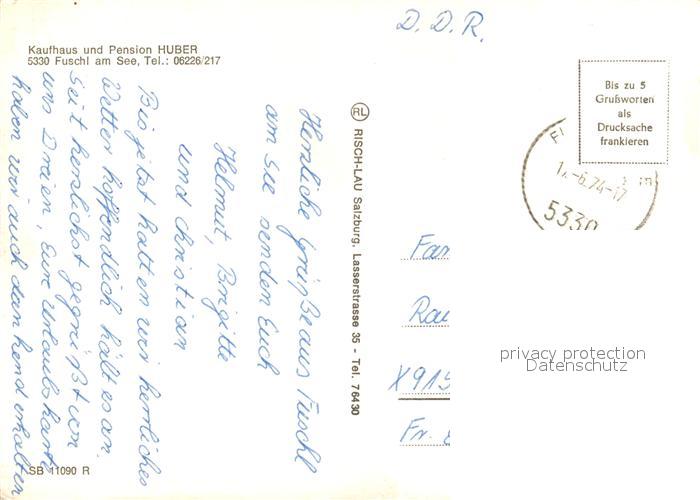 D. D. R.
Kaufhaus und Pension HUBER
5330 Fuschl am See, Tel.: 06226/217
Bis zu 5
Grußworten
als
Drucksache
frankieren
-6.74-17
5330
Herzliche Grüße aus Fuschl
am See senden Euch
Helmut, Brigitte
und Christian
Bis jetzt hatten wir herrliches
Wetter hoffendlich hält es an.
Seit herzlichst gegrüßt von
uns Dreien, Eure Urlaubskarte
haben wir auch dankend erhalten
RL RISCH-LAU Salzburg, Lasserstrasse 35 - Tel. 76430
Fam
Rau
X915
Fr.
privacy protection
Datenschutz
SB 11090 R